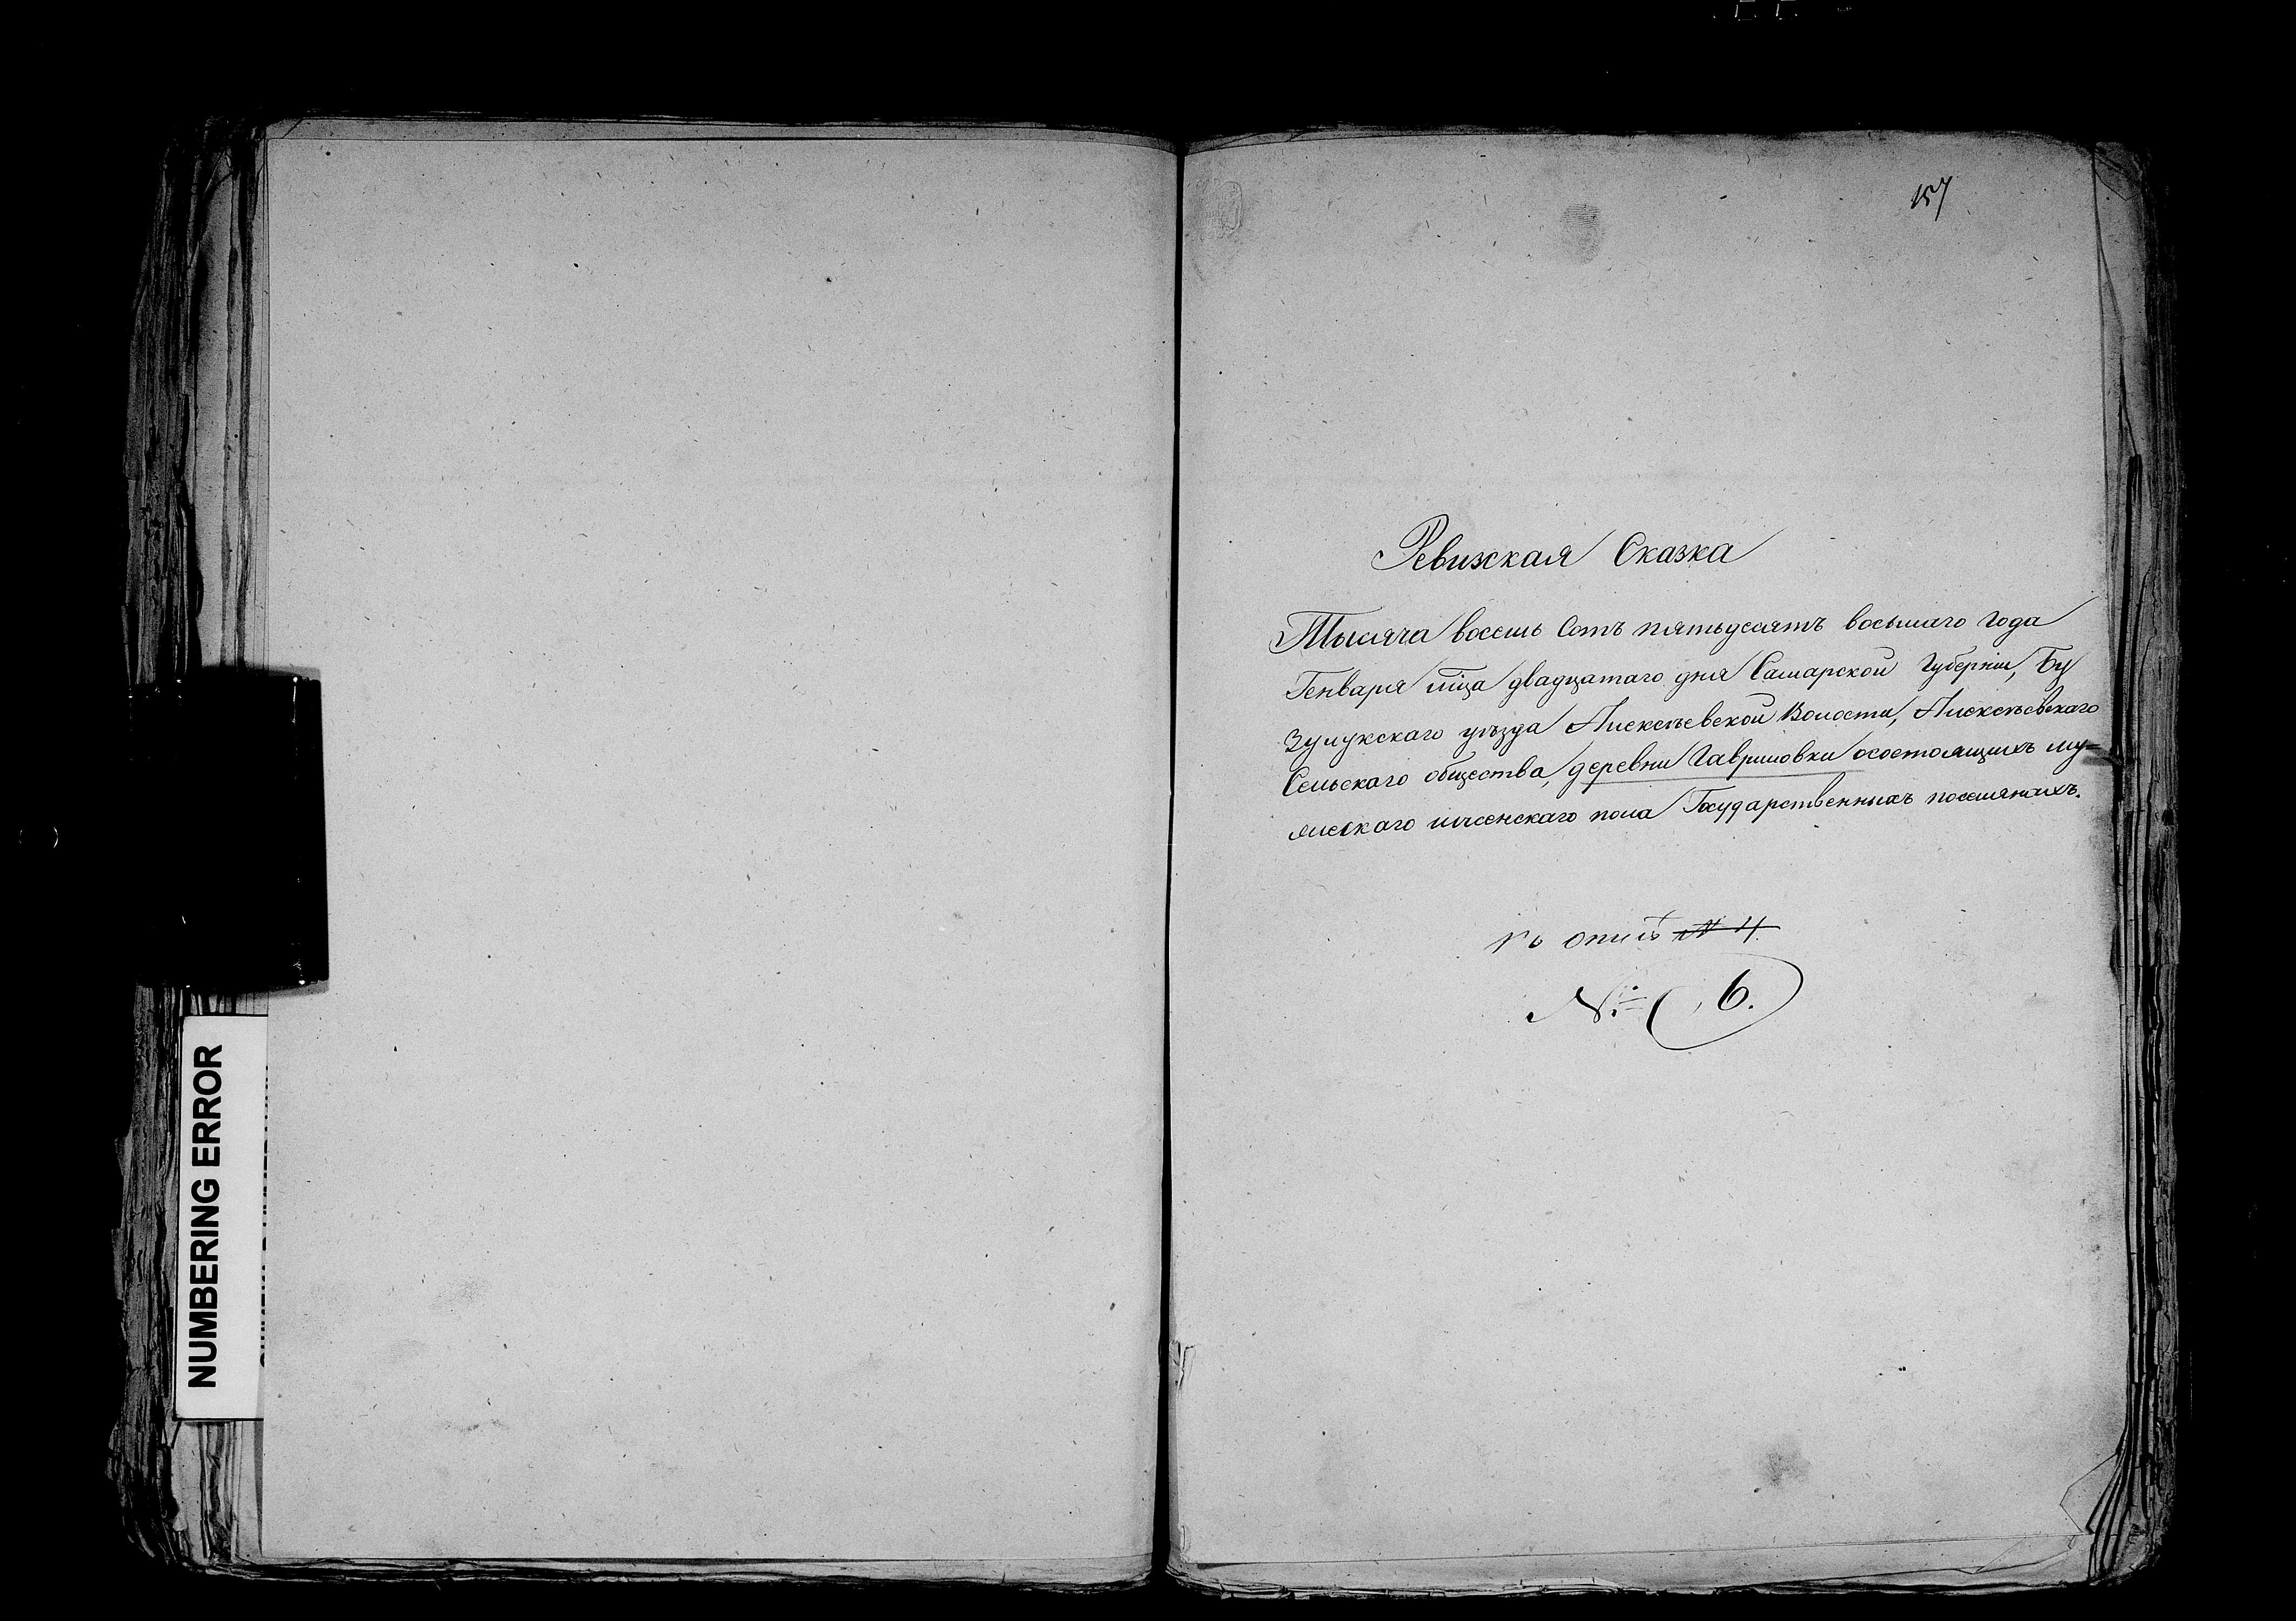 157
Ревижская Сказка
Тысяча восемь Сотъ пятьдесятъ восьмаго года
Генваря мца двадцатаго дня Самарской Губернии, Бу
зулукскаго уѣзда Алексѣевской Волости, Алексѣевскаго
Сельскаго общества, деревни Гавриловки осостоящихъ му=
жескаго и женскаго пола Государственныхъ поселянахъ.
къ описѣ № 4.
№ 6.
NUMBERING ERROR